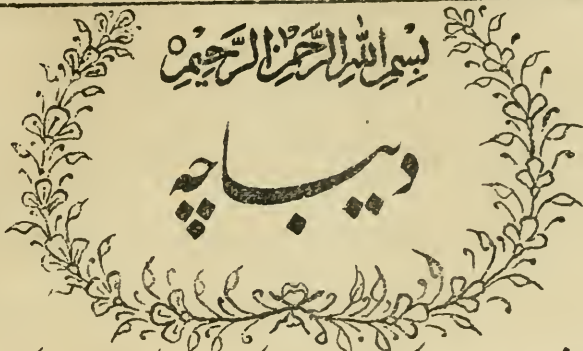 بِسْمِ اللّٰهِ الرَّحْمٰنِ الرَّحِيْمِ ○
دیباچہ